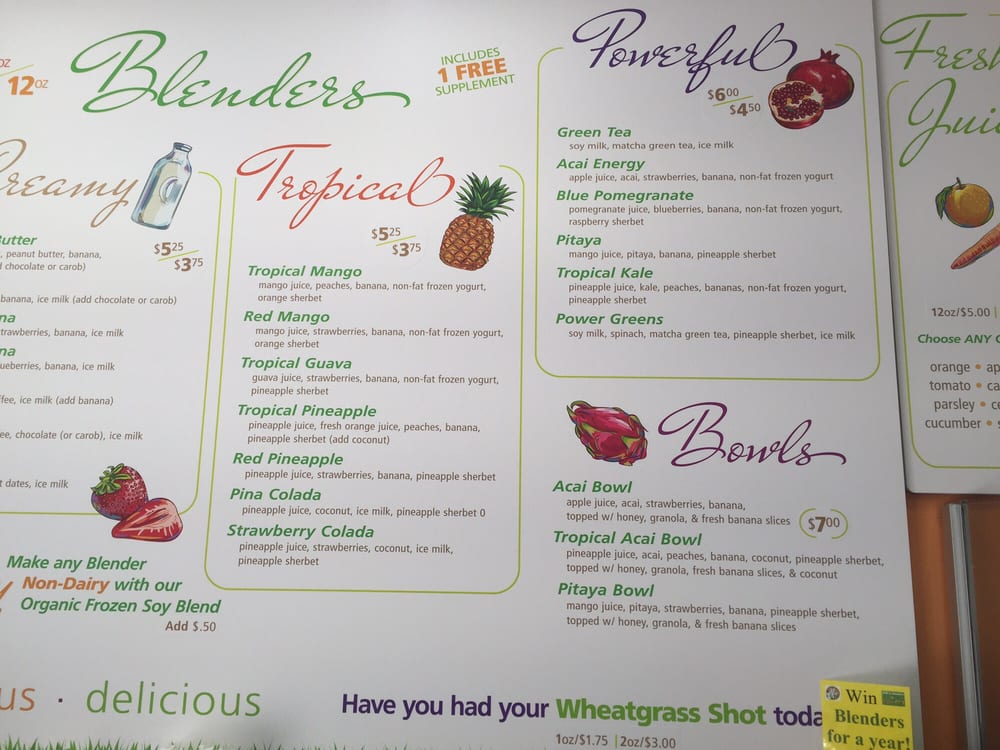 OZ
12OZ
Blenders
INCLUDES
1 FREE
SUPPLEMENT
Creamy
$5.25
$3.75
Butter
, peanut butter, banana,
d chocolate or carob)
banana, ice milk (add chocolate or carob)
na
trawberries, banana, ice milk
na
ueberries, banana, ice milk
ffee, ice milk (add banana)
ee, chocolate (or carob), ice milk
t dates, ice milk
Make any Blender
Non-Dairy with our
Organic Frozen Soy Blend
Add $.50
Tropical
$5.25
$3.75
Tropical Mango
mango juice, peaches, banana, non-fat frozen yogurt,
orange sherbet
Red Mango
mango juice, strawberries, banana, non-fat frozen yogurt,
orange sherbet
Tropical Guava
guava juice, strawberries, banana, non-fat frozen yogurt,
pineapple sherbet
Tropical Pineapple
pineapple juice, fresh orange juice, peaches, banana,
pineapple sherbet (add coconut)
Red Pineapple
pineapple juice, strawberries, banana, pineapple sherbet
Pina Colada
pineapple juice, coconut, ice milk, pineapple sherbet 0
Strawberry Colada
pineapple juice, strawberries, coconut, ice milk,
pineapple sherbet
Powerful
$6.00
$4.50
Green Tea
soy milk, matcha green tea, ice milk
Acai Energy
apple juice, acai, strawberries, banana, non-fat frozen yogurt
Blue Pomegranate
pomegranate juice, blueberries, banana, non-fat frozen yogurt,
raspberry sherbet
Pitaya
mango juice, pitaya, banana, pineapple sherbet
Tropical Kale
pineapple juice, kale, peaches, bananas, non-fat frozen yogurt,
pineapple sherbet
Power Greens
soy milk, spinach, matcha green tea, pineapple sherbet, ice milk
Bowls
Acai Bowl
apple juice, acai, strawberries, banana,
topped w/ honey, granola, & fresh banana slices
$7.00
Tropical Acai Bowl
pineapple juice, acai, peaches, banana, coconut, pineapple sherbet,
topped w/ honey, granola, fresh banana slices, & coconut
Pitaya Bowl
mango juice, pitaya, strawberries, banana, pineapple sherbet,
topped w/ honey, granola, & fresh banana slices
Fresh
Juic
12oz/$5.00 |
Choose ANY C
orange • ap
tomato • ca
parsley • ce
cucumber • s
us · delicious
Have you had your Wheatgrass Shot toda
1oz/$1.75 | 2oz/$3.00
Win
Blenders
for a year!